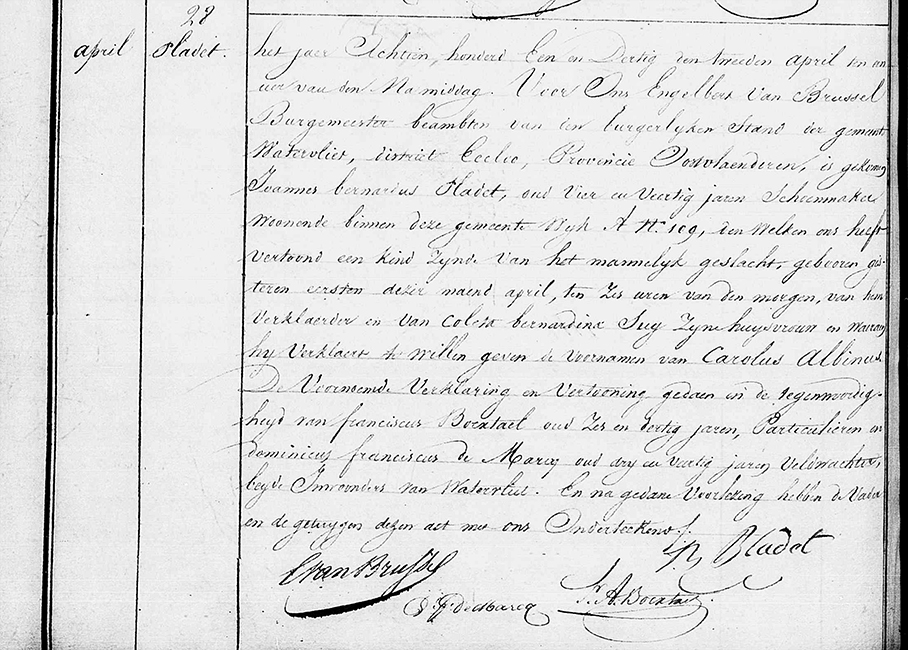 28
april
Pladet.
het jaer Achtien, honderd Een en Dertig den tweeden april ten
uer van den Namiddag. Voor Ons Engelbert Van Brussel
Burgemeester beambten van den burgerlyken Stand der gemeente
Watervliet, district Eecloo, Provincie Oostvlaenderen, is gekomen
Joannes bernardus Pladet, oud Vier en Veertig jaren Schoenmaker
Woonende binnen deze gemeente Wyk A No 109, den Welken ons heeft
Vertoond een kind Zynde Van het mannelyk geslacht, gebooren gis-
teren eersten dezer maend april, ten Zes uren van den morgen, van hem
Verklaerder en van Coleta bernardina Suy Zyne huysvrouw en Waeraen
hy Verklaert te Willen geven de Voornamen van Carolus Albinus
De Voornoemde Verklaring en Vertooning gedaen in de tegenwoordig-
heyd van franciscus Boextael oud Zes en dertig jaren, Particulieren en
dominicus franciscus de Marcq oud dry en Veertig jaren Veldwachter,
beyde Inwoonders van Watervliet. En na gedane Voorlezing hebben de Vader
en de getuygen dezen act met ons Onderteekend
Pladet
E van Brussel
D. F. De Marcq
F. A. Boextael